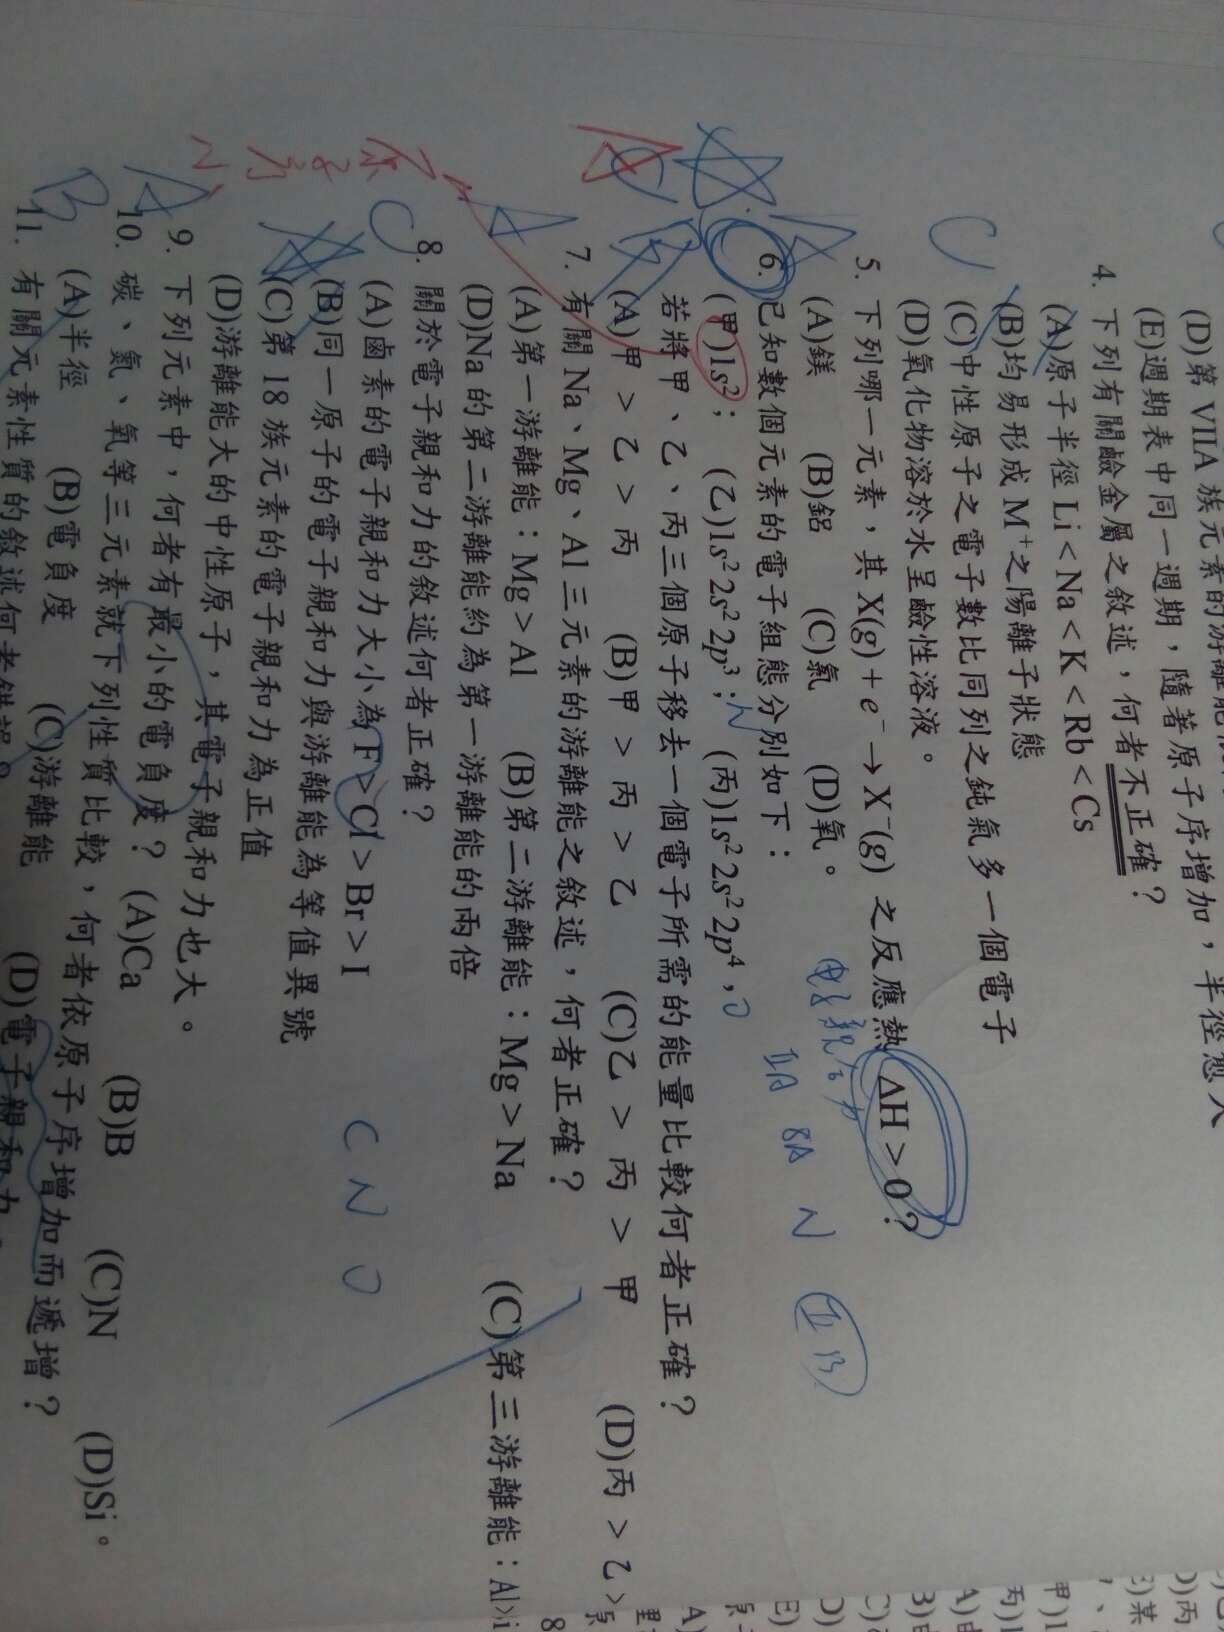 (D)第 VIIA 族元素的游離能
(E)週期表中同一週期，隨著原子序增加，半徑愈大
4. 下列有關鹼金屬之敘述，何者不正確？
(A)原子半徑 Li < Na < K < Rb < Cs
(B)均易形成 M⁺之陽離子狀態
(C)中性原子之電子數比同列之鈍氣多一個電子
(D)氧化物溶於水呈鹼性溶液。
C
5. 下列哪一元素，其 X(g) + e⁻ → X⁻(g) 之反應熱 ΔH > 0？
(A)鎂 (B)鋁 (C)氣 (D)氧。
電子親和力
IIA 8A N
6. 已知數個元素的電子組態分別如下：
(甲)1s²； (乙)1s² 2s² 2p³；N (丙)1s² 2s² 2p⁴，O
若將甲、乙、丙三個原子移去一個電子所需的能量比較何者正確？
(A)甲 > 乙 > 丙 (B)甲 > 丙 > 乙 (C)乙 > 丙 > 甲 (D)丙 > 乙 >
7. 有關 Na、Mg、Al 三元素的游離能之敘述，何者正確？
(A)第一游離能：Mg > Al (B)第二游離能：Mg > Na (C)第三游離能：Al>
(D)Na 的第二游離能約為第一游離能的兩倍
A
8. 關於電子親和力的敘述何者正確？
(A)鹵素的電子親和力大小為 F > Cl > Br > I
(B)同一原子的電子親和力與游離能為等值異號
(C)第 18 族元素的電子親和力為正值
(D)游離能大的中性原子，其電子親和力也大。
C
C N O
9. 下列元素中，何者有最小的電負度？ (A)Ca (B)B (C)N (D)Si。
A
10. 碳、氮、氧等三元素就下列性質比較，何者依原子序增加而遞增？
(A)半徑 (B)電負度 (C)游離能 (D)電子親和力。
B
11. 有關元素性質的敘述何者錯誤？